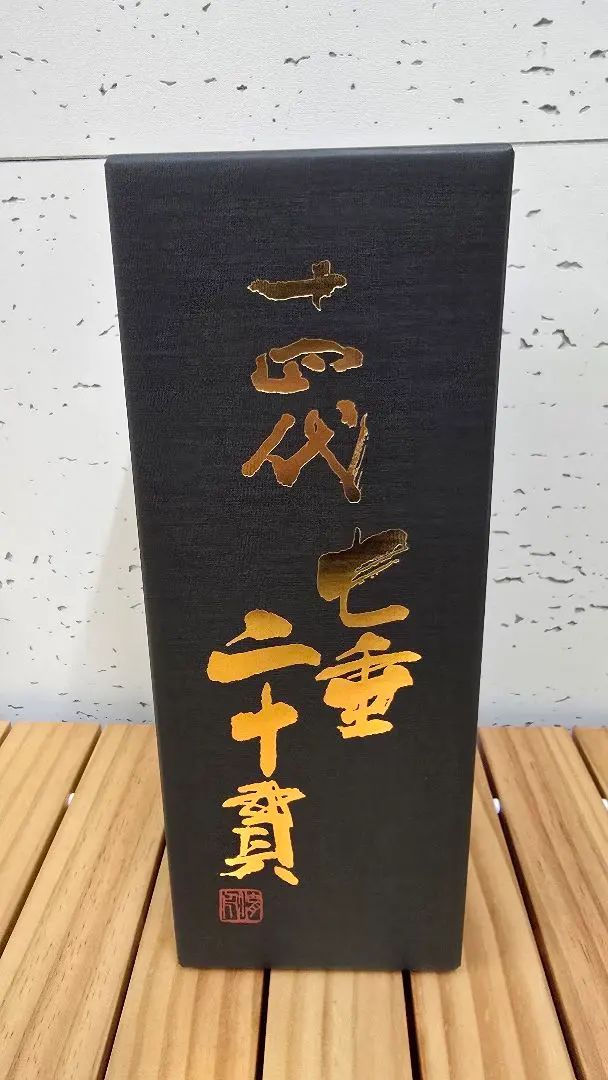 十四代
七垂
二十貫